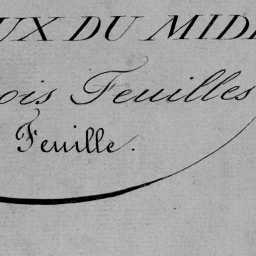 UX DU MIDI
ois Feuilles
Feuille.